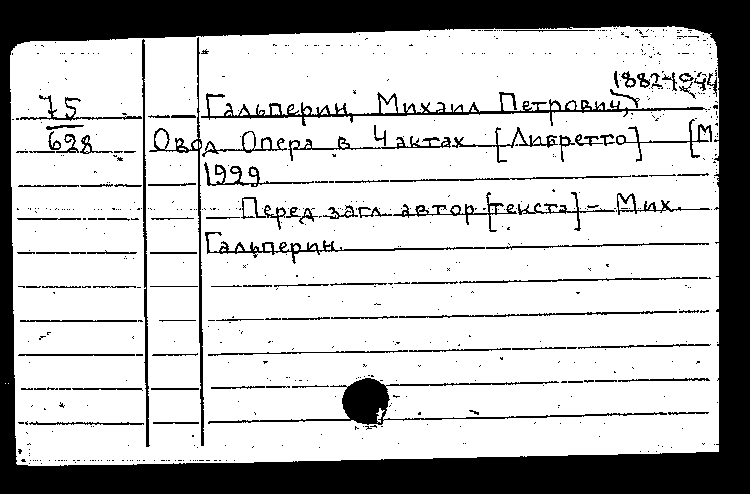 1882-1944
75 Гальперин, Михаил Петрович,
628 Овод Опера в 4 актах [Либретто] [М
1929
Перед загл автор [текста] – Мих.
Гальперин.